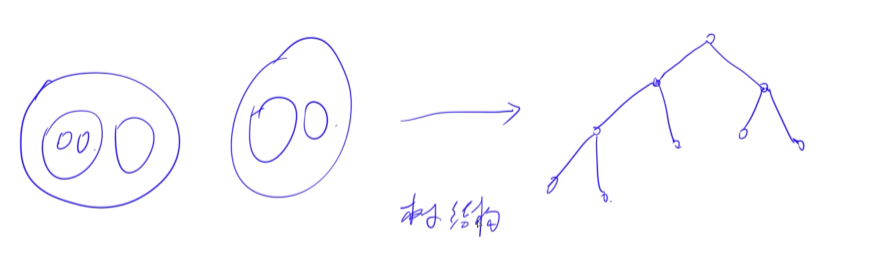 树结构